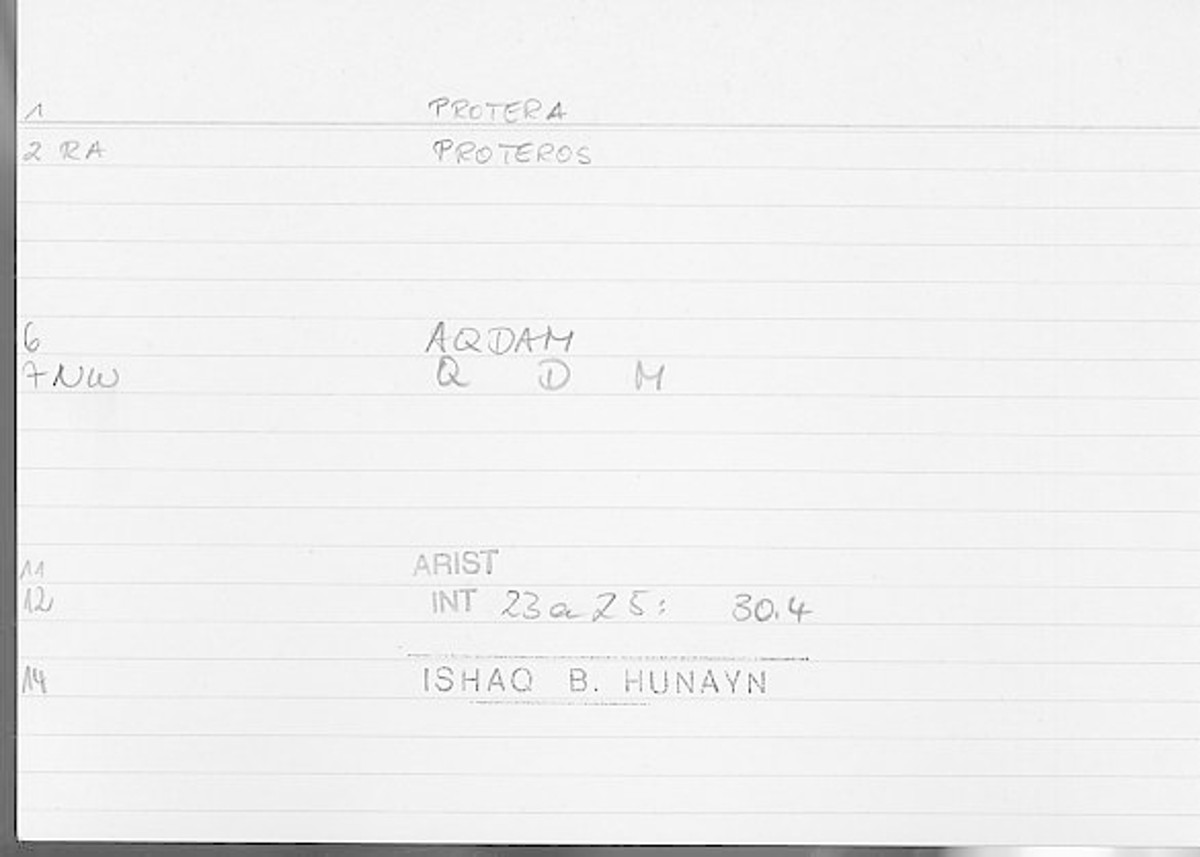 1 PROTERA
2 RA PROTEROS
6 AQDAM
7 NW Q D M
11 ARIST
12 INT 23a25: 30.4
14 ISHAQ B. HUNAYN